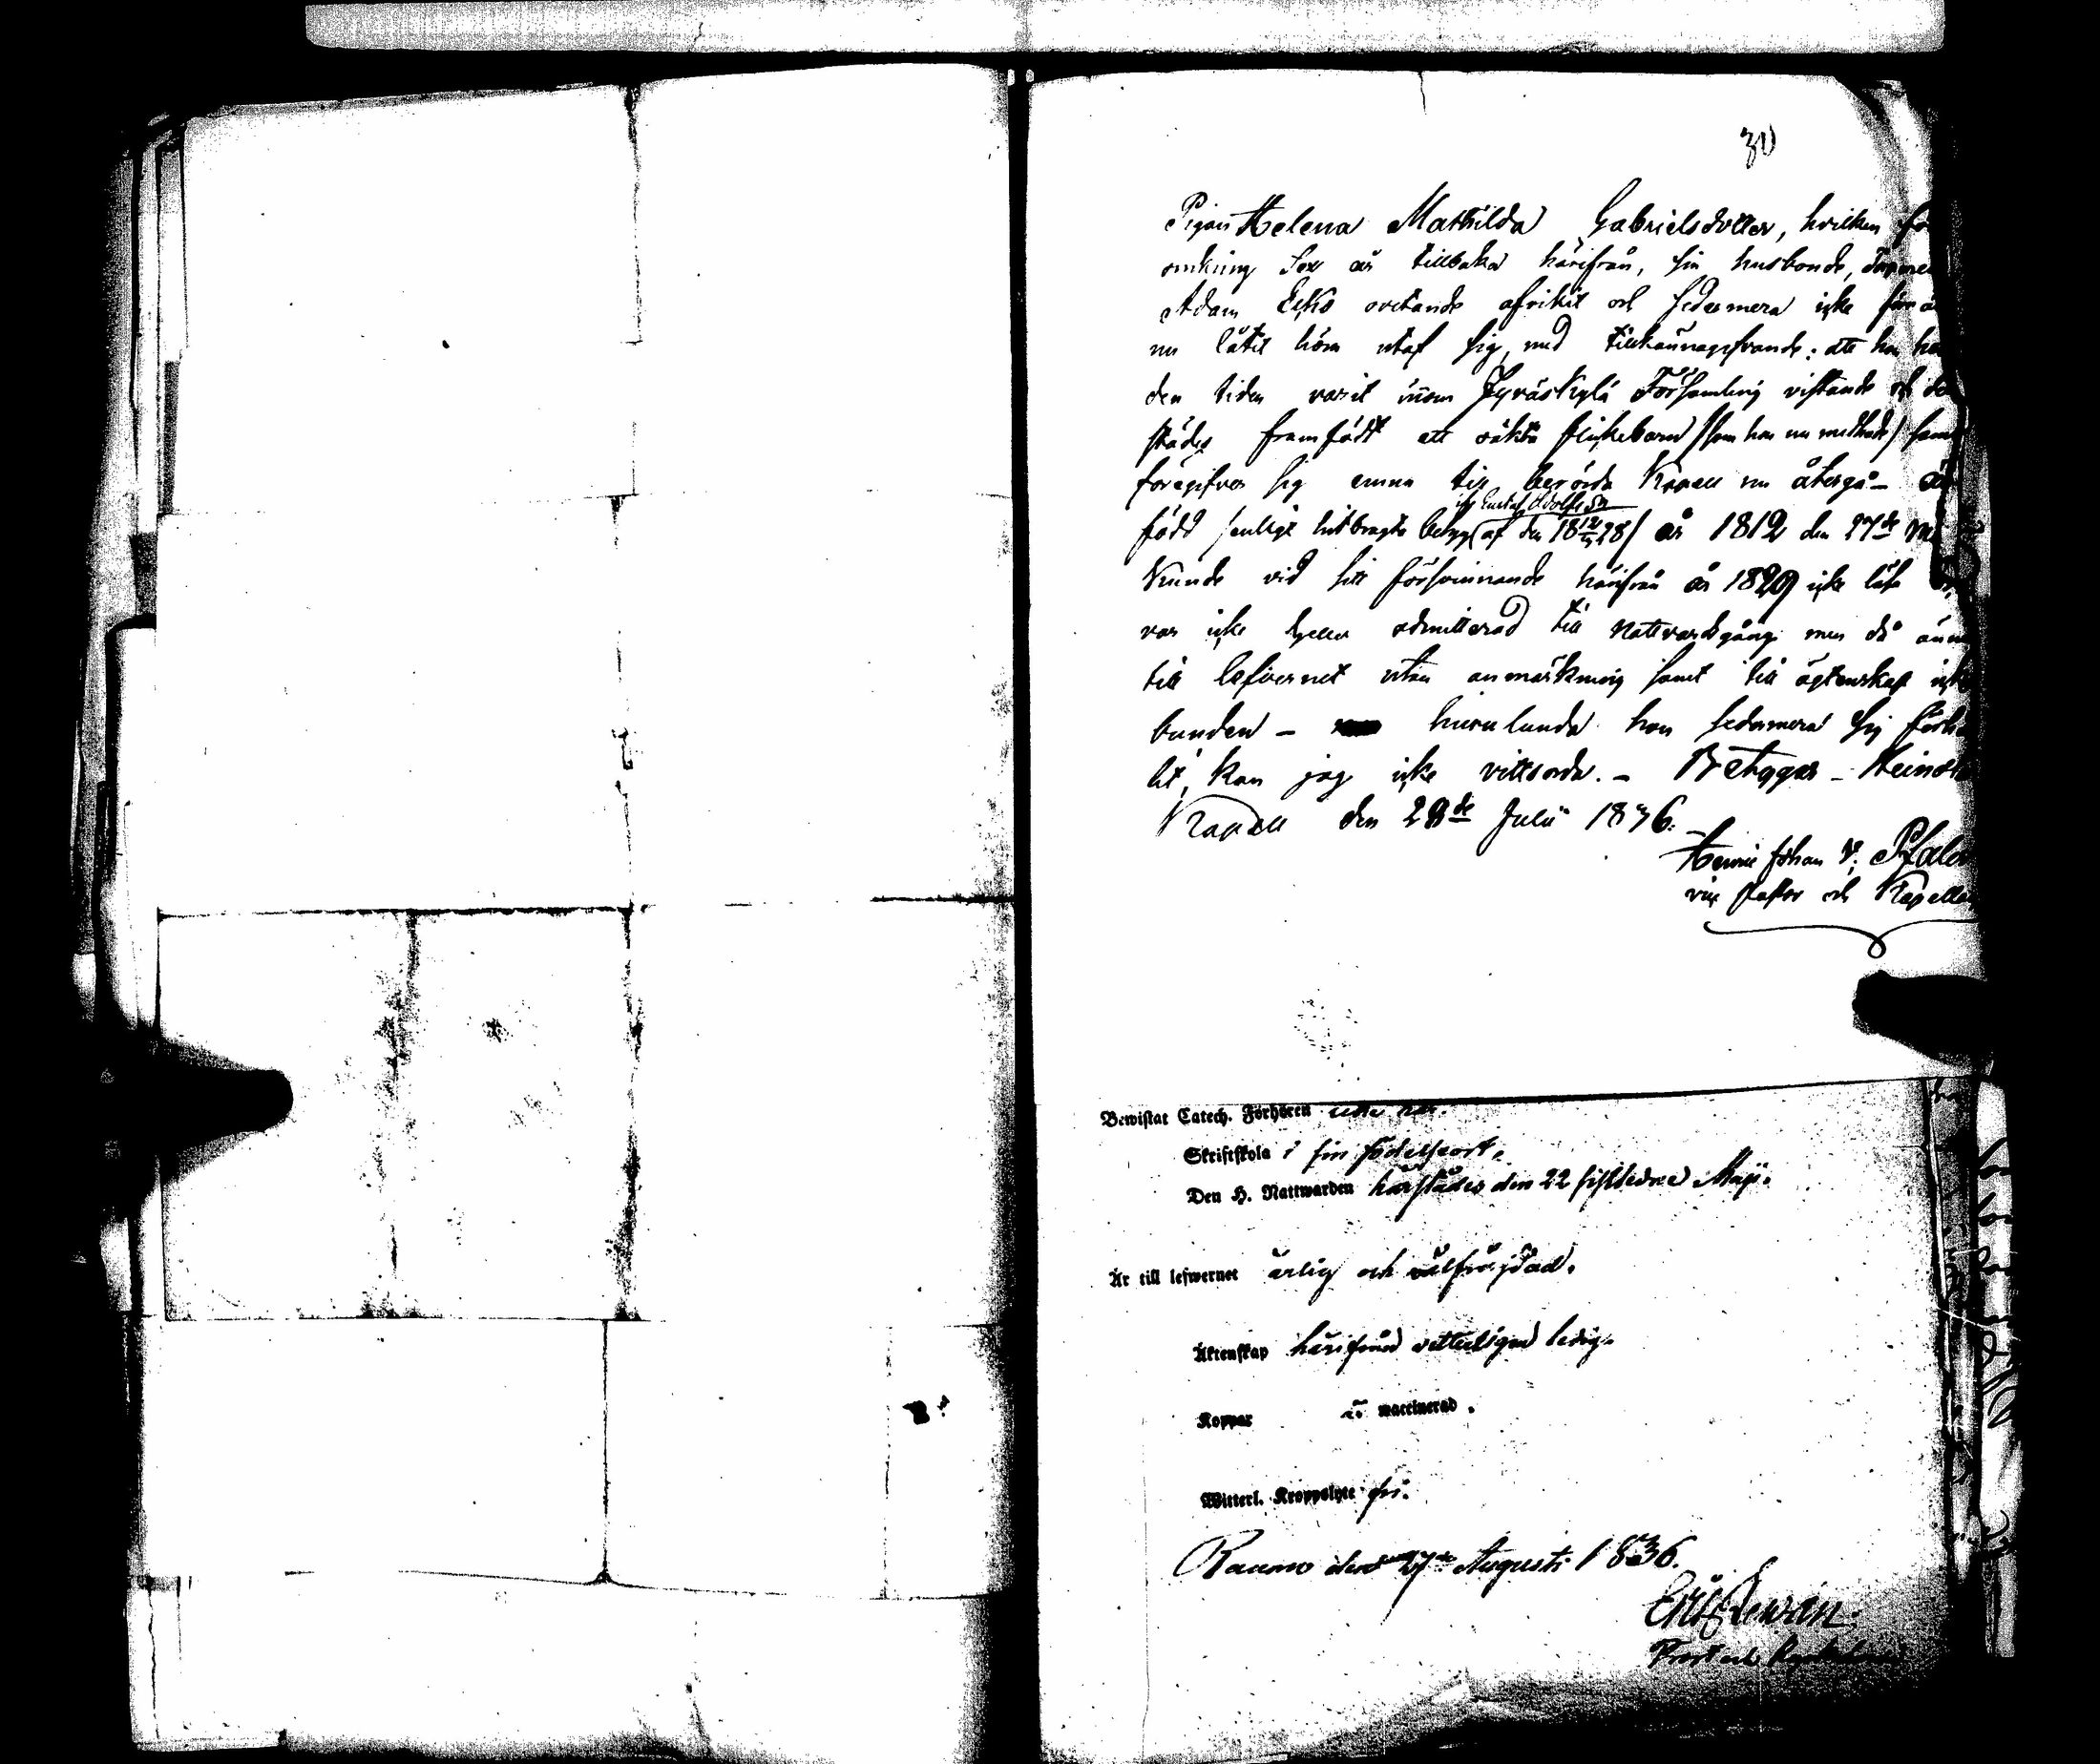 30
Pigan Helena Mathilda Gabrielsdotter, hvilken
omkring sex år tillbaka härifrån, sin husbonde,
Adam ovetande afvikit och sedermera icke
nu låtit höra utaf sig, med tillkännagifvande: att hon
den tiden varit inom Jyväskylä Församling vistande och
städes framfödt ett oäkta flickebarn (som hon nu medhade)
föregifver sig ämna till berörda Kapell nu återgå - är
Gustaf Adolfs
född (enligt hitbragte betyg af den 18 28) år 1812 den 27de
kunde vid sitt försvinnande härifrån år 1829 icke läsa
var icke heller admitterad till nattvardsgång men då
till lefvernet utan anmärkning samt till ägtenskap icke
bunden - huru lunda hon sedermera sig
lit, kan jag icke vittsorda. - Betygar -
Kapell den 28de Julii 1836.
Johan
vice Pastor och
Bewistat Catech. Förhören
Skriftskola i sin födelseort.
Den H. Nattwarden härstädes den 22 sistledne Maji.
Är till lefwernet ärlig och välfräjdad.
Äktenskap härifrån vetterligen ledig.
Koppar är waccinerad.
Witterl. Kroppslyte fri.
Raumo den 27de Augusti 1836.
Prost och